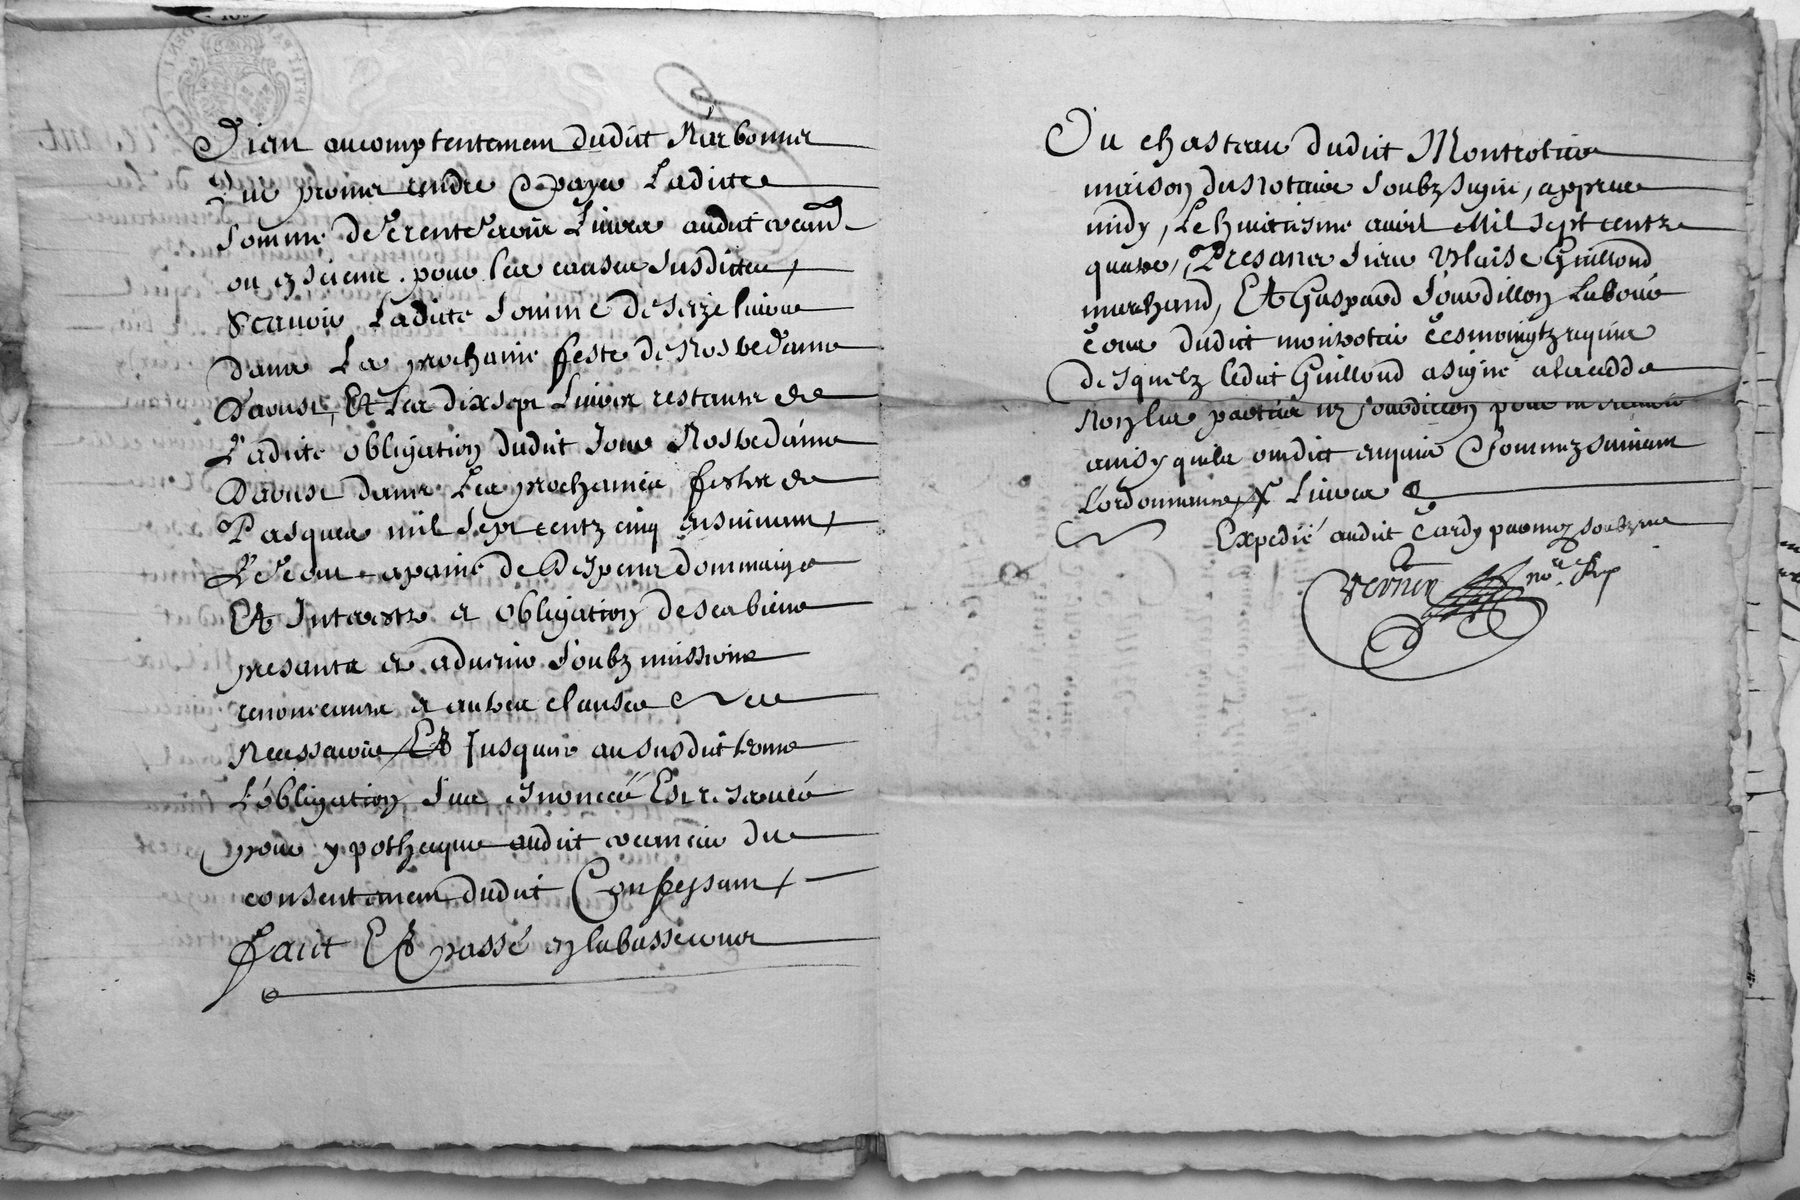 Sieur au comptentement dudict Narbonnes
Que promet rendre et payer Laditte
Somme de trente trois Livres audict
ou és sienne pour les causes Susdittes,
Scavoir Laditte Somme de seize livres
dans La prochaine feste de Nostre dame
d'aoust, Et Les dixsept Livres restants de
L'aditte obligation dudict Jour Nostre dame
d'aoust dans Les prochaines festes de
Pasques mil sept centz cinq Ensuivant,
Le tout a paine de Despens dommaiges
Et Interestz et obligation de ses biens
presants et advenir Soubz missions
renonceants et autres clauses
Necessaires, Et Jusques au susdict terme
L'obligation Sus esnoncée Est reservée
pour ypothecque audict creancier du
consentement dudict Confessant,
Faict Et passé en la basse cour
Du chasteau dudict Montrotier
maison du Notaire Soubz Signé, appres
midy, Le huictiesme avril Mil Sept centz
quatre, Presants Sieur Blaise Guilloud
marchand, Et Gaspard Sourdillon Laboureur
tous dudict Montrotier tesmoingtz requis
desquelz ledict Guilloud a signé a la cedde
Non les parties ny Sourdillon pour ne scavoir
ainsy quils ont dict enquis et sommez suivant
L'ordonnance, Livres
Expedié audict Tardy par moy soubzsigné
Vernay no.re R.